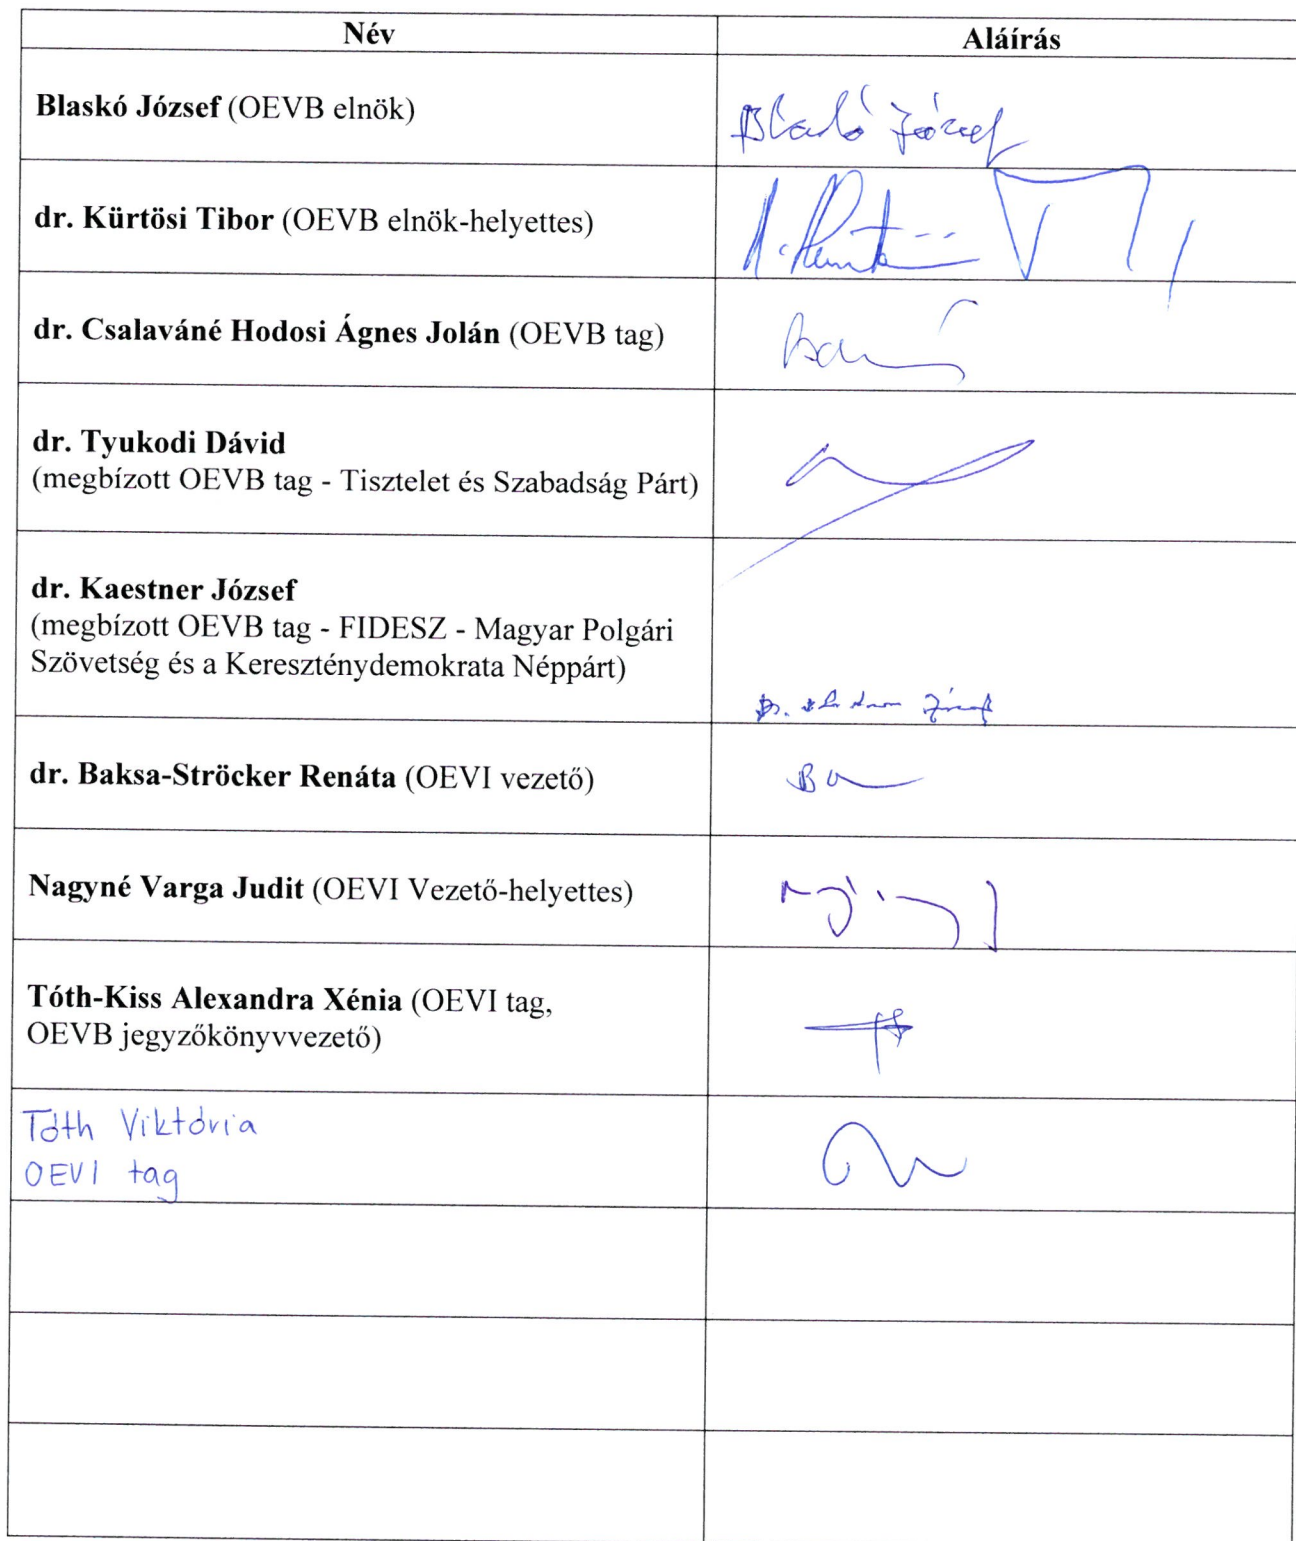 Név
Aláírás
Blaskó József (OEVB elnök)
Blaskó József
dr. Kürtösi Tibor (OEVB elnök-helyettes)
dr. Csalaváné Hodosi Ágnes Jolán (OEVB tag)
dr. Tyukodi Dávid
(megbízott OEVB tag - Tisztelet és Szabadság Párt)
dr. Kaestner József
(megbízott OEVB tag - FIDESZ - Magyar Polgári
Szövetség és a Kereszténydemokrata Néppárt)
dr. Baksa-Ströcker Renáta (OEVI vezető)
Nagyné Varga Judit (OEVI Vezető-helyettes)
Tóth-Kiss Alexandra Xénia (OEVI tag,
OEVB jegyzőkönyvvezető)
Tóth Viktória
OEVI tag